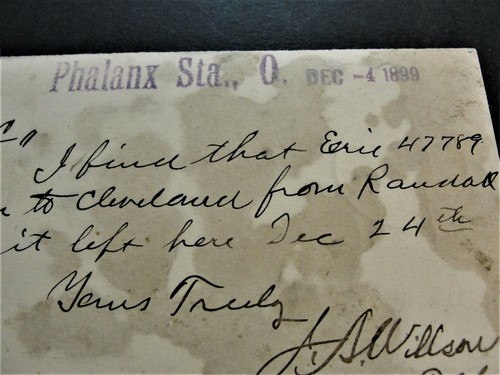 Phalanx Sta., O. DEC -4 1899
"I find that Erie 47789
to Cleveland from Randall
it left here Dec 24th
Yours Truly
J. A. Willson